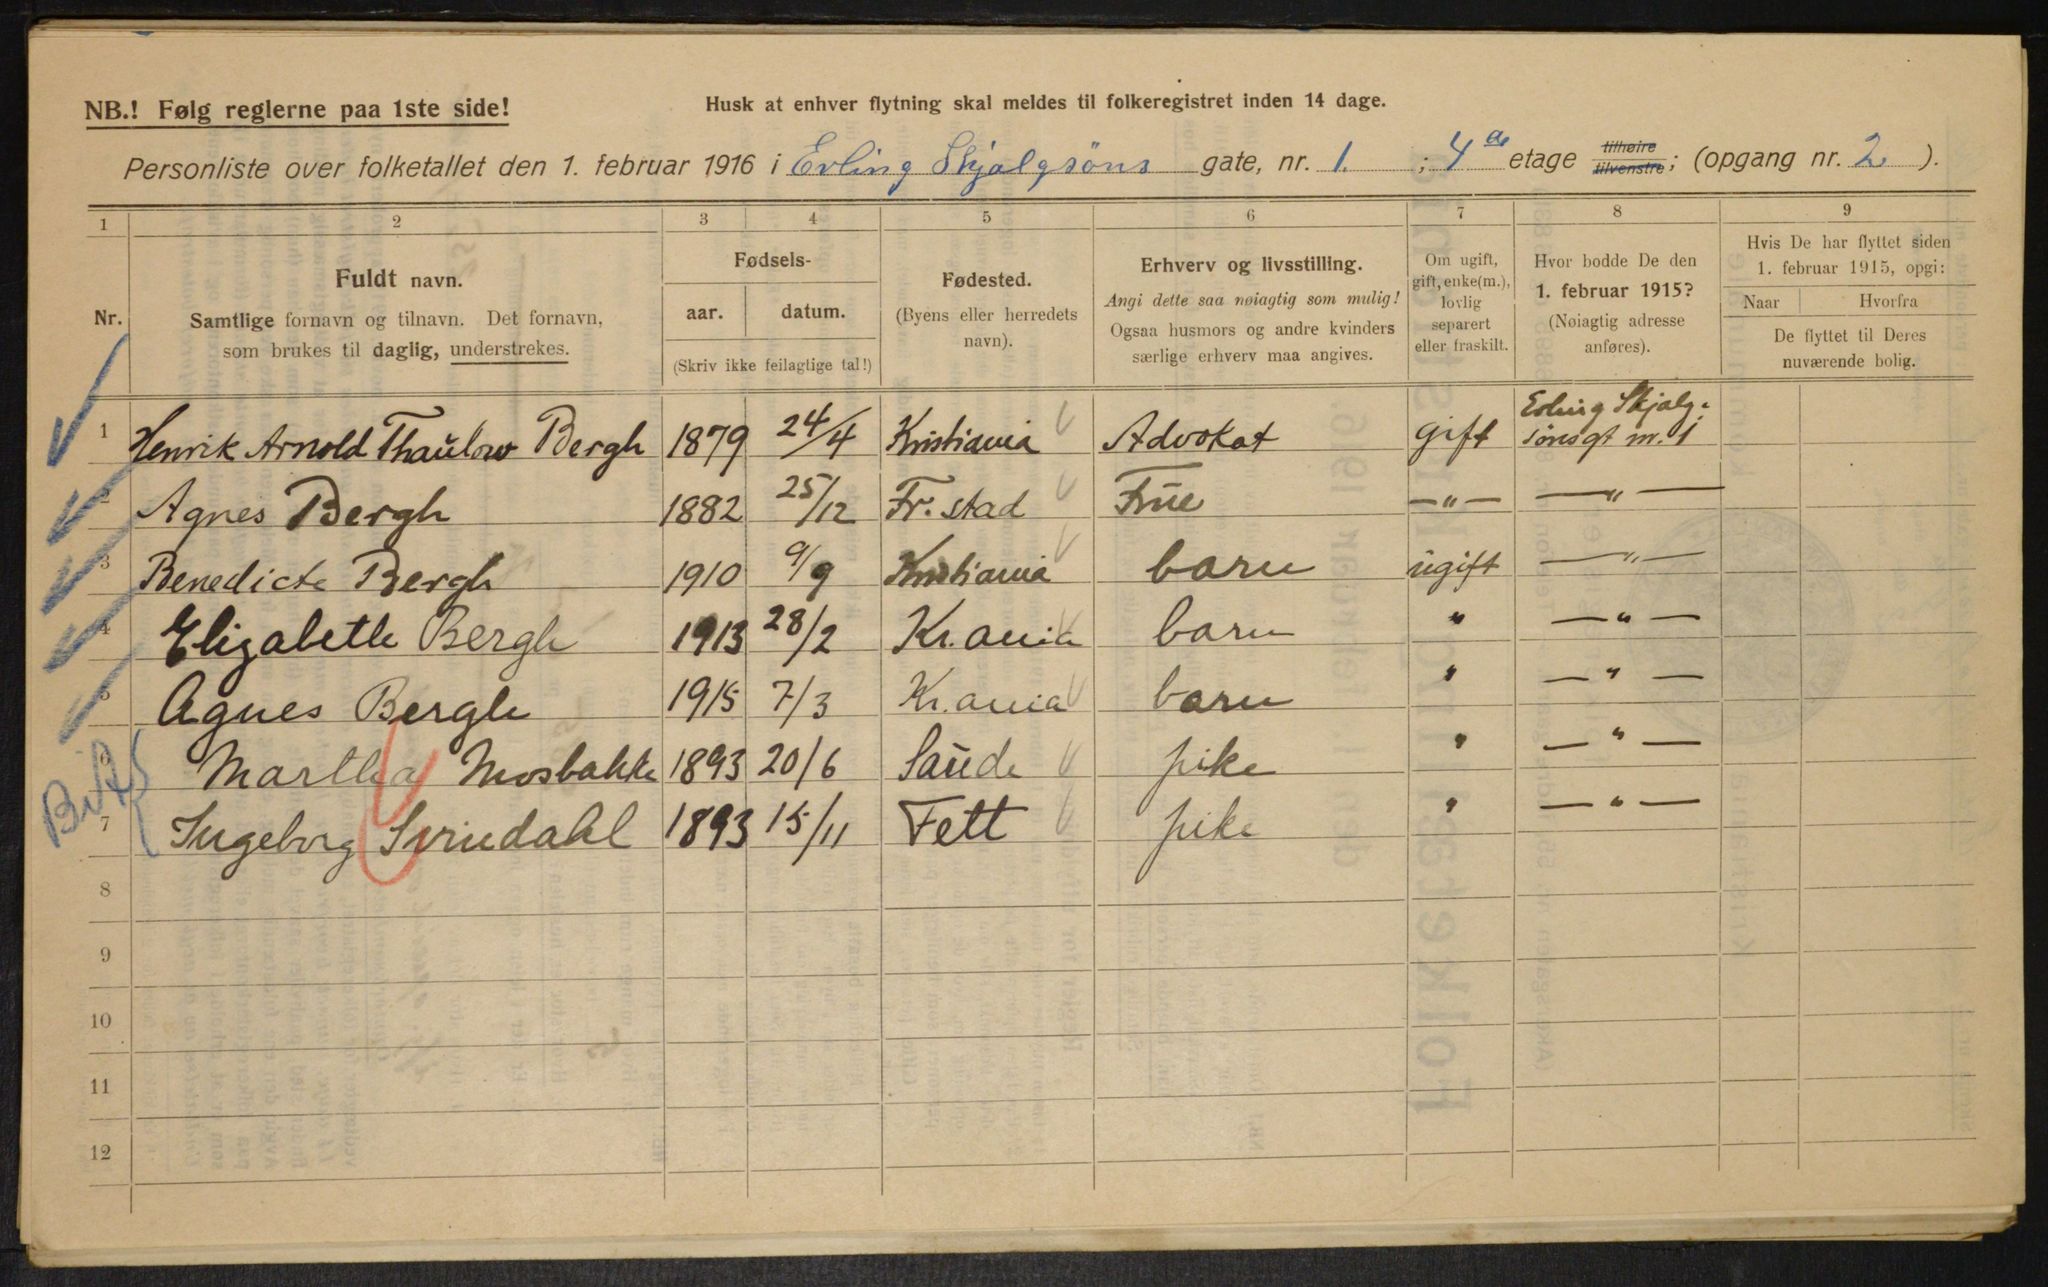 NB.! Følg reglerne paa 1ste side!
Husk at enhver flytning skal meldes til folkeregistret inden 14 dage.
Personliste over folketallet den 1. februar 1916 i Erling Skjalgsöns gate, nr. 1. ; 4de etage tilhøire tilvenstre; (opgang nr. 2. ).
1 2 3 4 5 6 7 8 9
Nr.
Fuldt navn.
Samtlige fornavn og tilnavn. Det fornavn,
som brukes til daglig, understrekes.
Fødsels-
aar. datum.
(Skriv ikke feilagtige tal!)
Fødested.
(Byens eller herredets
navn).
Erhverv og livsstilling.
Angi dette saa nøiagtig som mulig!
Ogsaa husmors og andre kvinders
særlige erhverv maa angives.
Om ugift,
gift, enke(m.),
lovlig
separert
eller fraskilt.
Hvor bodde De den
1. februar 1915?
(Nøiagtig adresse
anføres).
Hvis De har flyttet siden
1. februar 1915, opgi:
Naar Hvorfra
De flyttet til Deres
nuværende bolig.
1 Henrik Arnold Thaulow Bergh 1879 24/4 Kristiania Advokat gift Erling Skjalg-
sönsgt nr. 1
2 Agnes Bergh 1882 25/12 Fr.stad Frue —„— —„—
3 Benedicte Bergh 1910 9/9 Kristiania barn ugift —„—
4 Elizabeth Bergh 1913 28/2 Kr.ania barn " —„—
5 Agnes Bergh 1915 7/3 Kr.ania barn " —„—
6 Martha Mosbakke 1893 20/6 Saude pike " —„—
7 Ingeborg Svindahl 1893 15/11 Fett pike " —„—
8
9
10
11
12